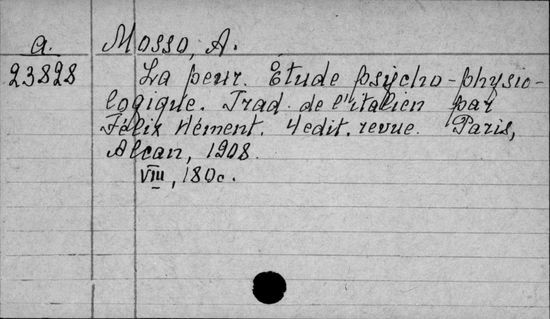 a. Mosso, A.
23828 La peur. Étude psycho-physio-
logique. Trad. de l'italien par
Félix Hément. 4 edit. revue. Paris,
Alcan, 1908.
VIII, 180 c.